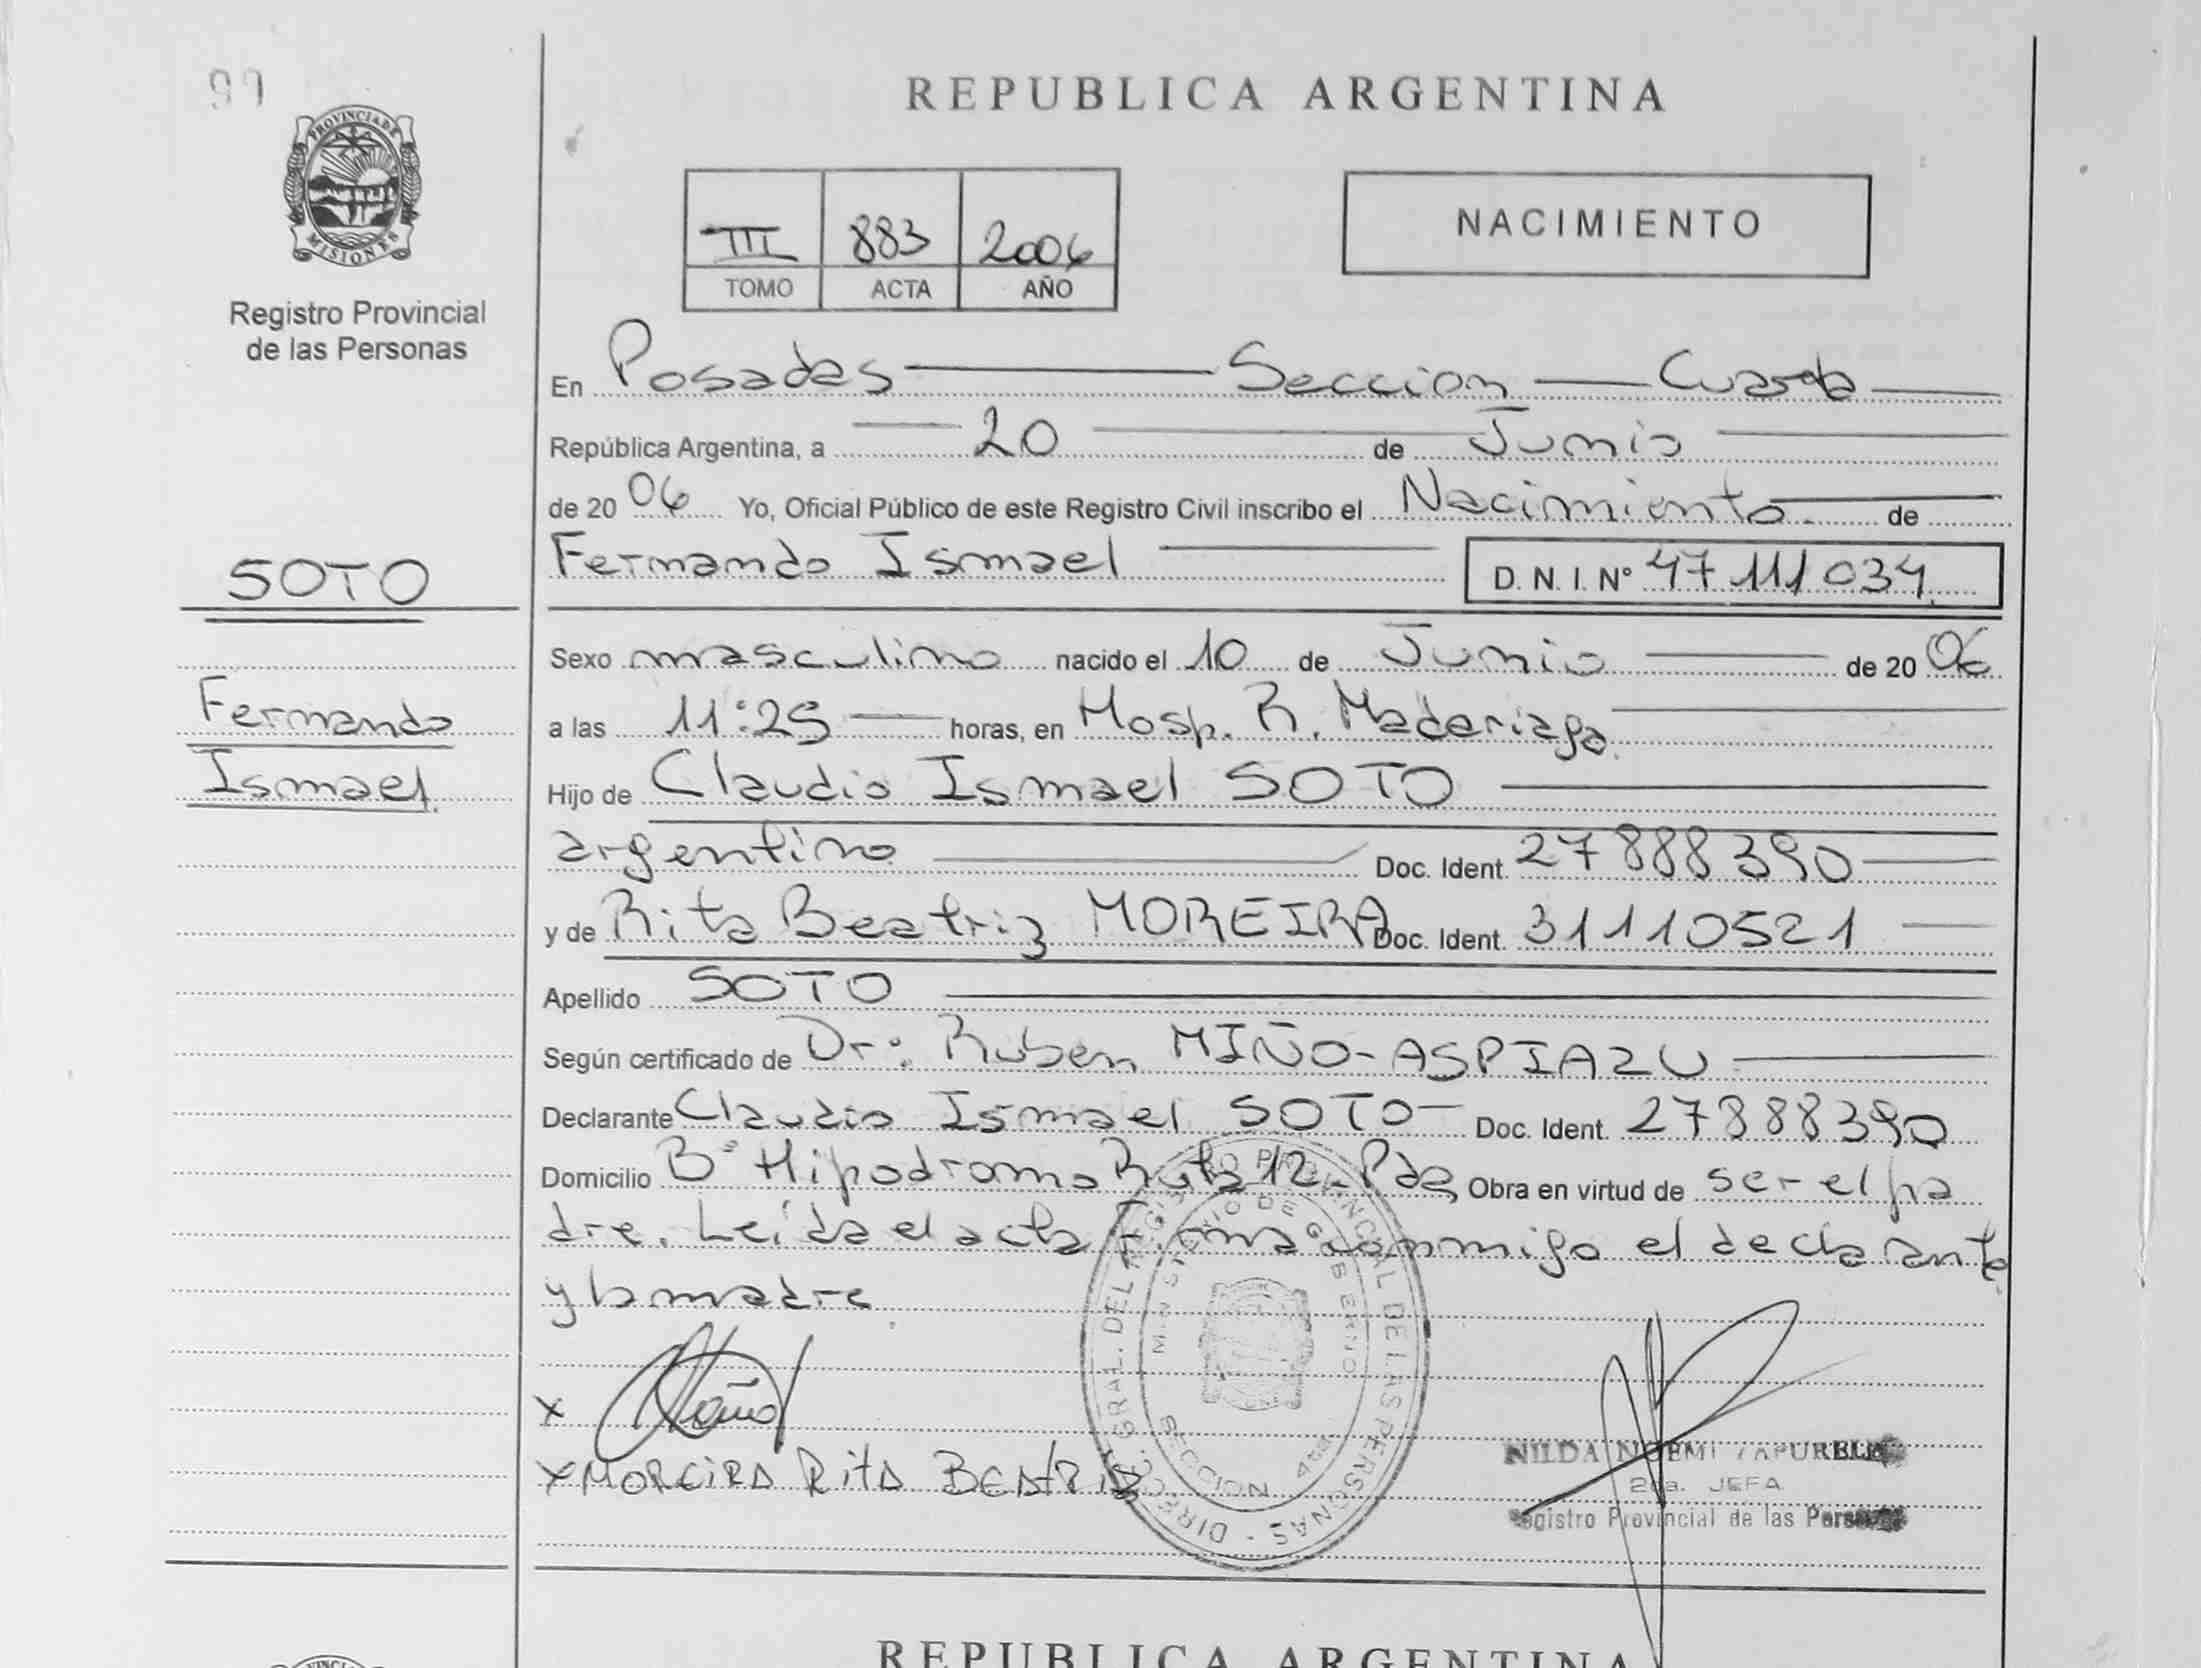 99
PROVINCIA DE
MISIONES
Registro Provincial
de las Personas
SOTO
Fernando
Ismael.
REPUBLICA ARGENTINA
III 883 2006
TOMO ACTA AÑO
NACIMIENTO
En Posadas Seccion Cuarta
República Argentina, a 20 de Junio
de 20 06 Yo, Oficial Público de este Registro Civil inscribo el Nacimiento de
Fernando Ismael D. N. I. Nº 47.111.034
Sexo masculino nacido el 10 de Junio de 20 06
a las 11:25 horas, en Hosp. R. Madariaga
Hijo de Claudio Ismael SOTO
argentino Doc. Ident. 27888390
y de Rita Beatriz MOREIRA Doc. Ident. 31110521
Apellido SOTO
Según certificado de Dr: Ruben MIÑO-ASPIAZU
Declarante Claudio Ismael SOTO Doc. Ident. 27888390
Domicilio Bº Hipodromo Ruta 12. Pdas Obra en virtud de ser el pa
dre. Leída el acta firma conmigo el declarante
y la madre.
X
X MOREIRA RITA BEATRIZ
DIRECC. GRAL. DEL REGISTRO PROVINCIAL DE LAS PERSONAS -
MINISTERIO DE GOBIERNO
SECCION 4ta
NILDA NOEMI
2da. JEFA
Registro Provincial de las Personas
REPUBLICA ARGENTINA